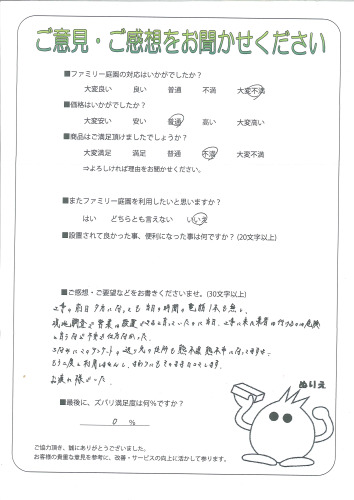 ご意見・ご感想をお聞かせください
■ファミリー庭園の対応はいかがでしたか？
大変良い 良い 普通 不満 大変不満
■価格はいかがでしたか？
大変安い 安い 普通 高い 大変高い
■商品はご満足頂けましたでしょうか？
大変満足 満足 普通 不満 大変不満
⇒よろしければ理由をお聞かせください。
■またファミリー庭園を利用したいと思いますか？
はい どちらとも言えない いいえ
■設置されて良かった事、便利になった事は何ですか？(20文字以上)
■ご感想・ご要望などをお書きくださいませ。(30文字以上)
工事の前日夕方に行っても、時間の電話1本も無く。
現地調査で営業は設置できると言っていたのに当日、工事に来た業者は
と言う
このアンケートの送り先の住所も熊本県熊本市に
もう二度と利用しません
お疲れ様でした。
ぬりえ
■最後に、ズバリ満足度は何%ですか？
0 %
ご協力頂き、誠にありがとうございました。
お客様の貴重な意見を参考に、改善・サービスの向上に活かして参ります。